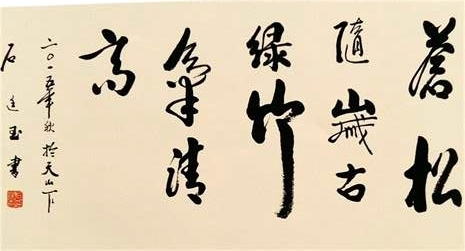 蒼松
隨嵗古
绿竹
氣清
高
二〇一五年秋於天山下
石廷玉書